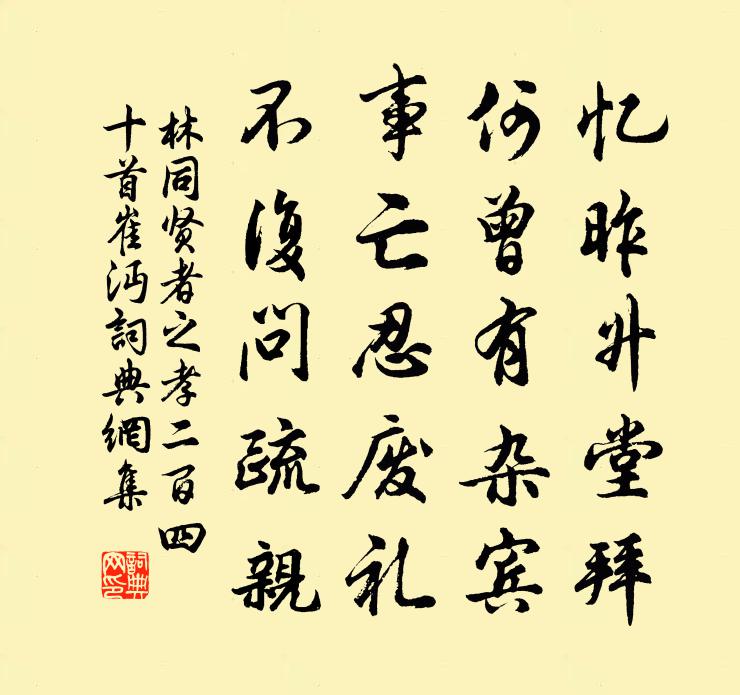 忆昨升堂拜
何曾有杂宾
事亡忍废礼
不复问疏親
林同贤者之孝二百四
十首崔沔詞典網集
詞典
网印